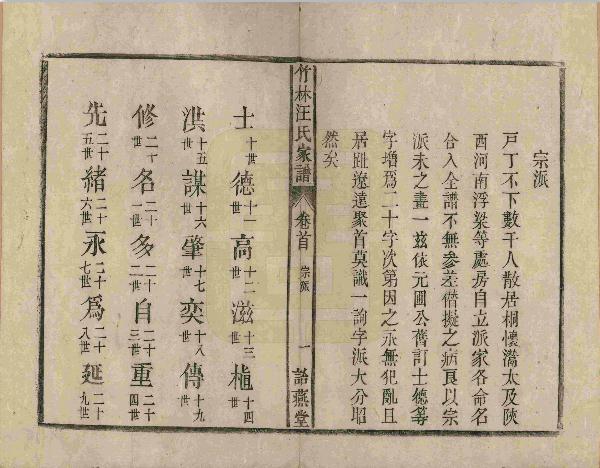 宗派
戸丁不下數千人散居桐懷潛太及陝
西河南浮梁等處房自立派家各命名
合入全譜不無參差僭擬之病良以宗
派未之畫一茲依元圃公舊訂士德等
字增爲二十字次第因之永無犯亂且
居趾遼遠聚首莫識一詢字派大分昭
然矣
竹林汪氏家譜
卷首
宗派
一
詒燕堂
士十世德十一世高十二世滋十三世植十四世
洪十五世謀十六世肇十七世奕十八世傳十九世
修二十世名二十一世多二十二世自二十三世重二十四世
先二十五世緒二十六世永二十七世爲二十八世延二十九世